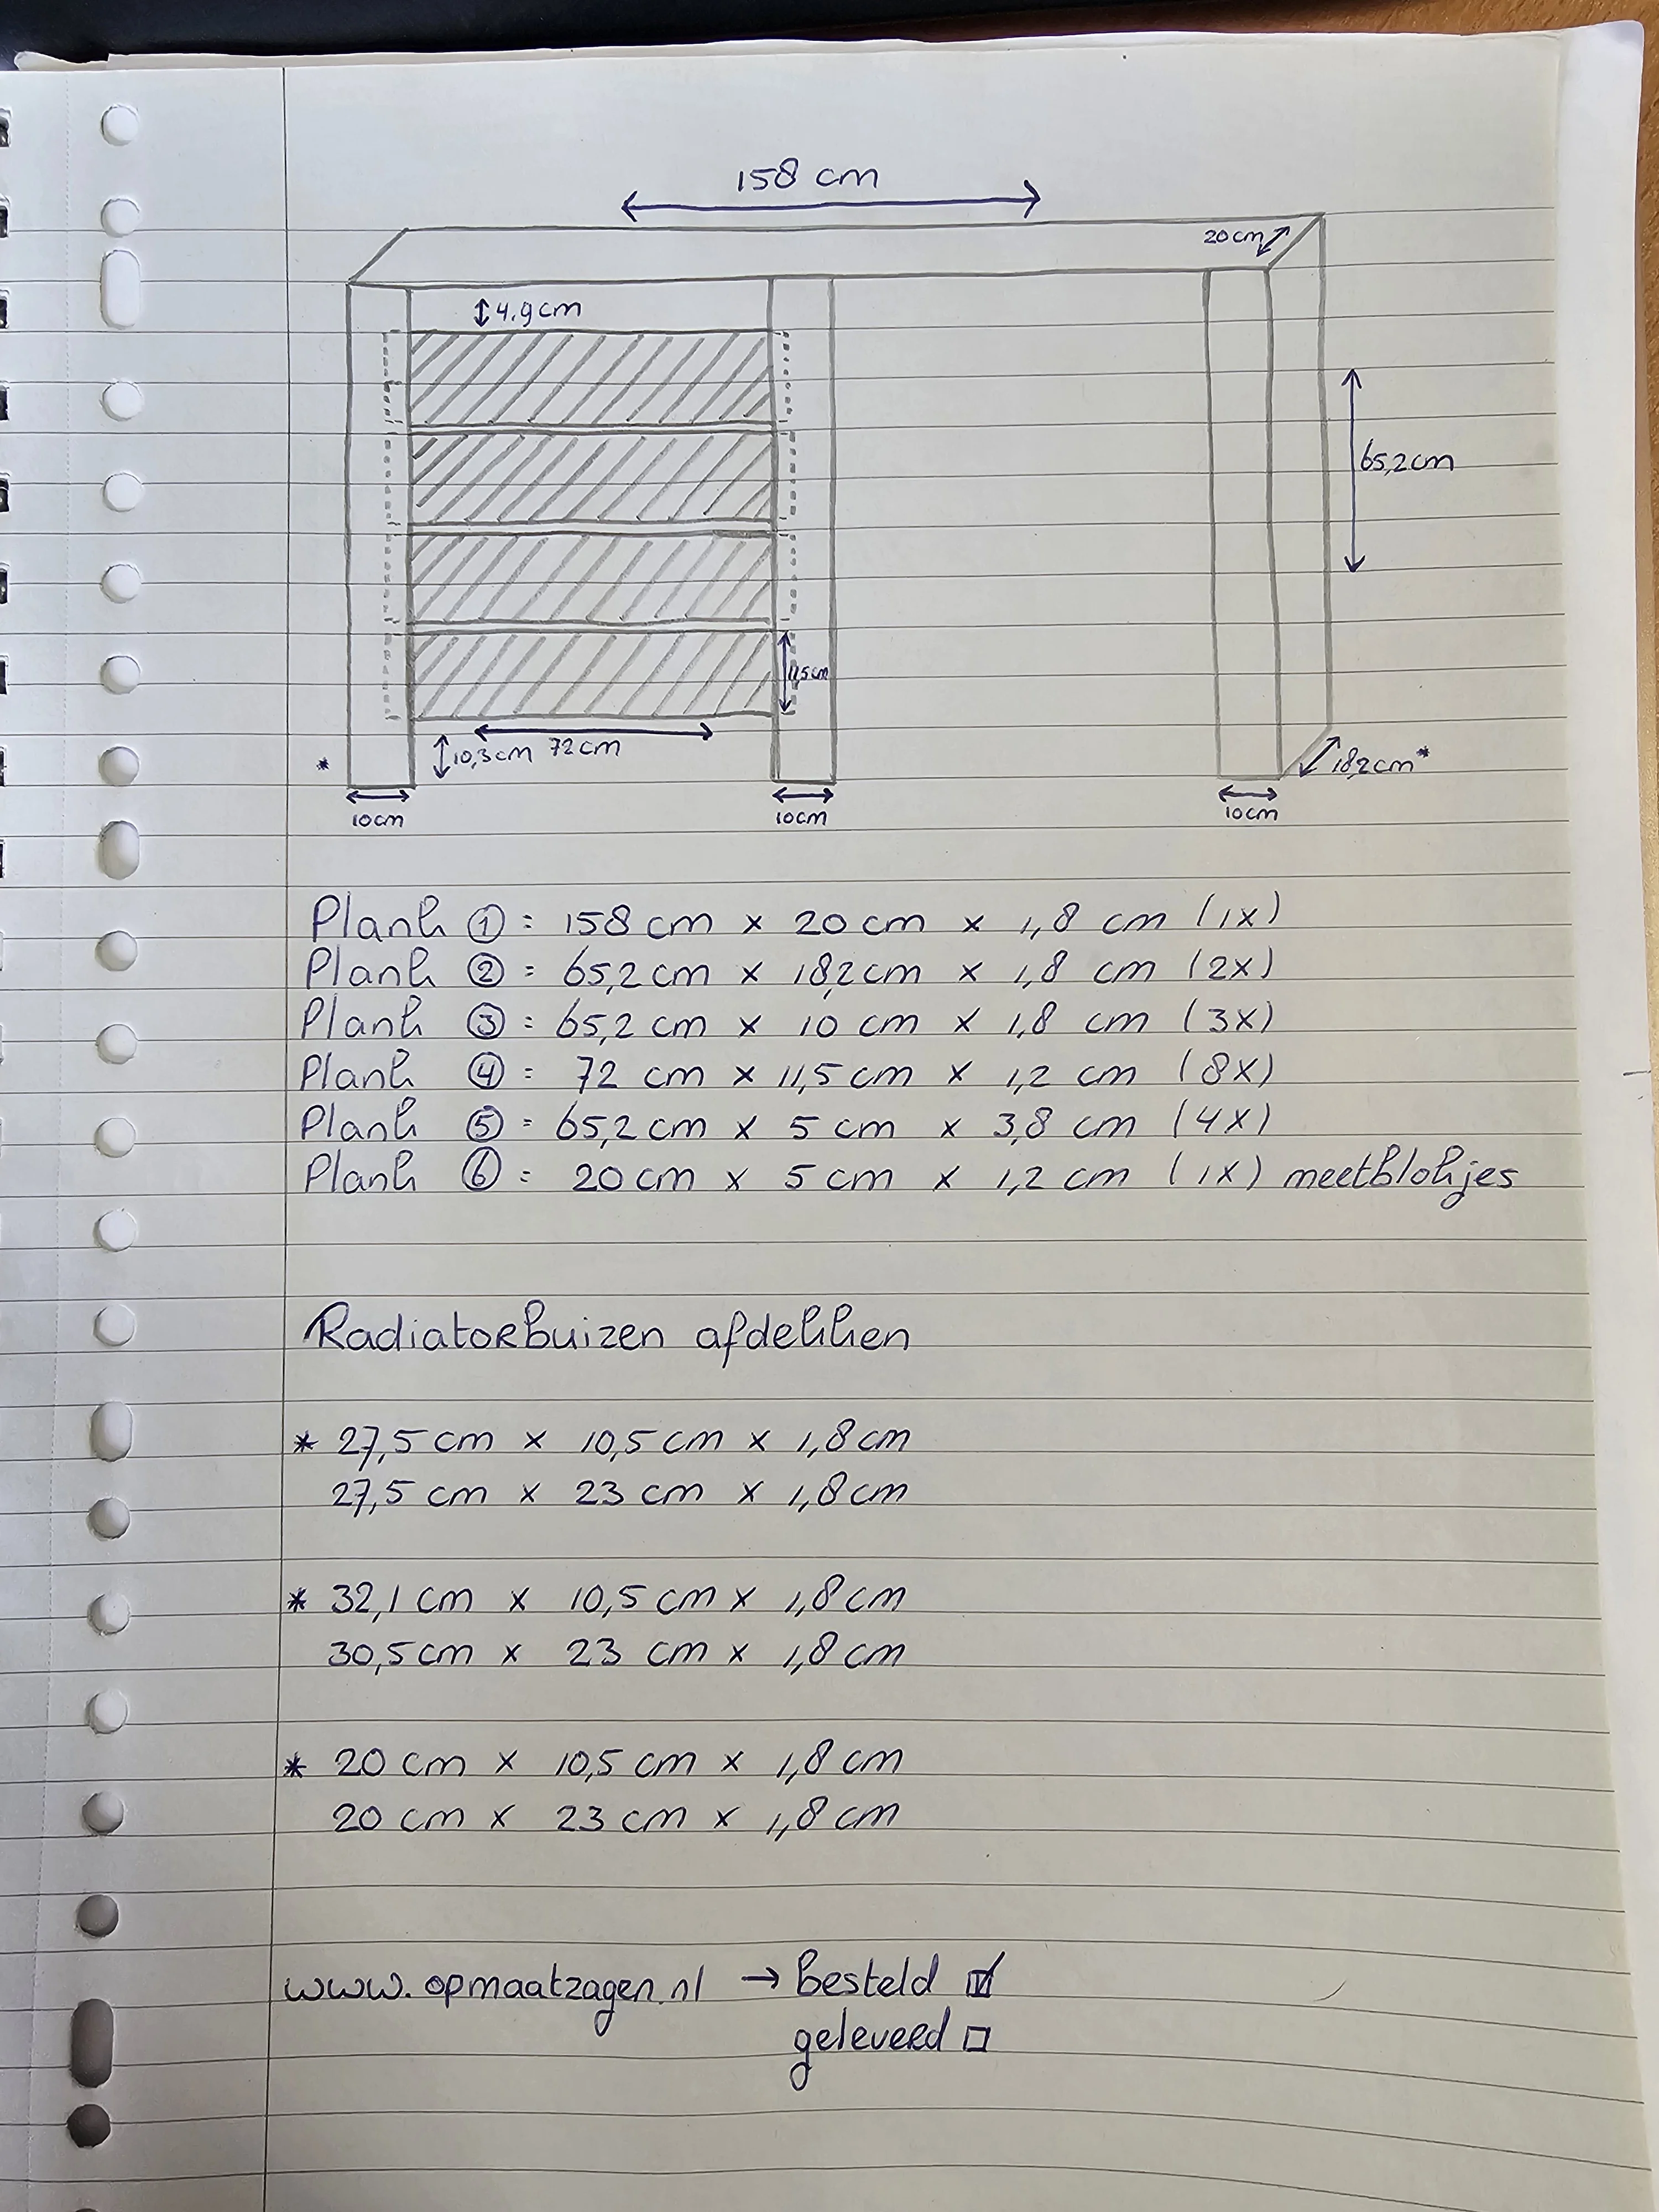 158 cm
20cm
4.9cm
65,2cm
11,5cm
10,3cm 72cm
*
18,2cm*
10cm
10cm
10cm
Plank ① = 158 cm x 20 cm x 1,8 cm (1x)
Plank ② = 65,2 cm x 18,2 cm x 1,8 cm (2x)
Plank ③ = 65,2 cm x 10 cm x 1,8 cm (3x)
Plank ④ = 72 cm x 11,5 cm x 1,2 cm (8x)
Plank ⑤ = 65,2 cm x 5 cm x 3,8 cm (4x)
Plank ⑥ = 20 cm x 5 cm x 1,2 cm (1x) meetblokjes
Radiatorbuizen afdekken
* 27,5 cm x 10,5 cm x 1,8 cm
27,5 cm x 23 cm x 1,8 cm
* 32,1 cm x 10,5 cm x 1,8 cm
30,5 cm x 23 cm x 1,8 cm
* 20 cm x 10,5 cm x 1,8 cm
20 cm x 23 cm x 1,8 cm
www.opmaatzagen.nl → besteld ☑
geleverd ☐